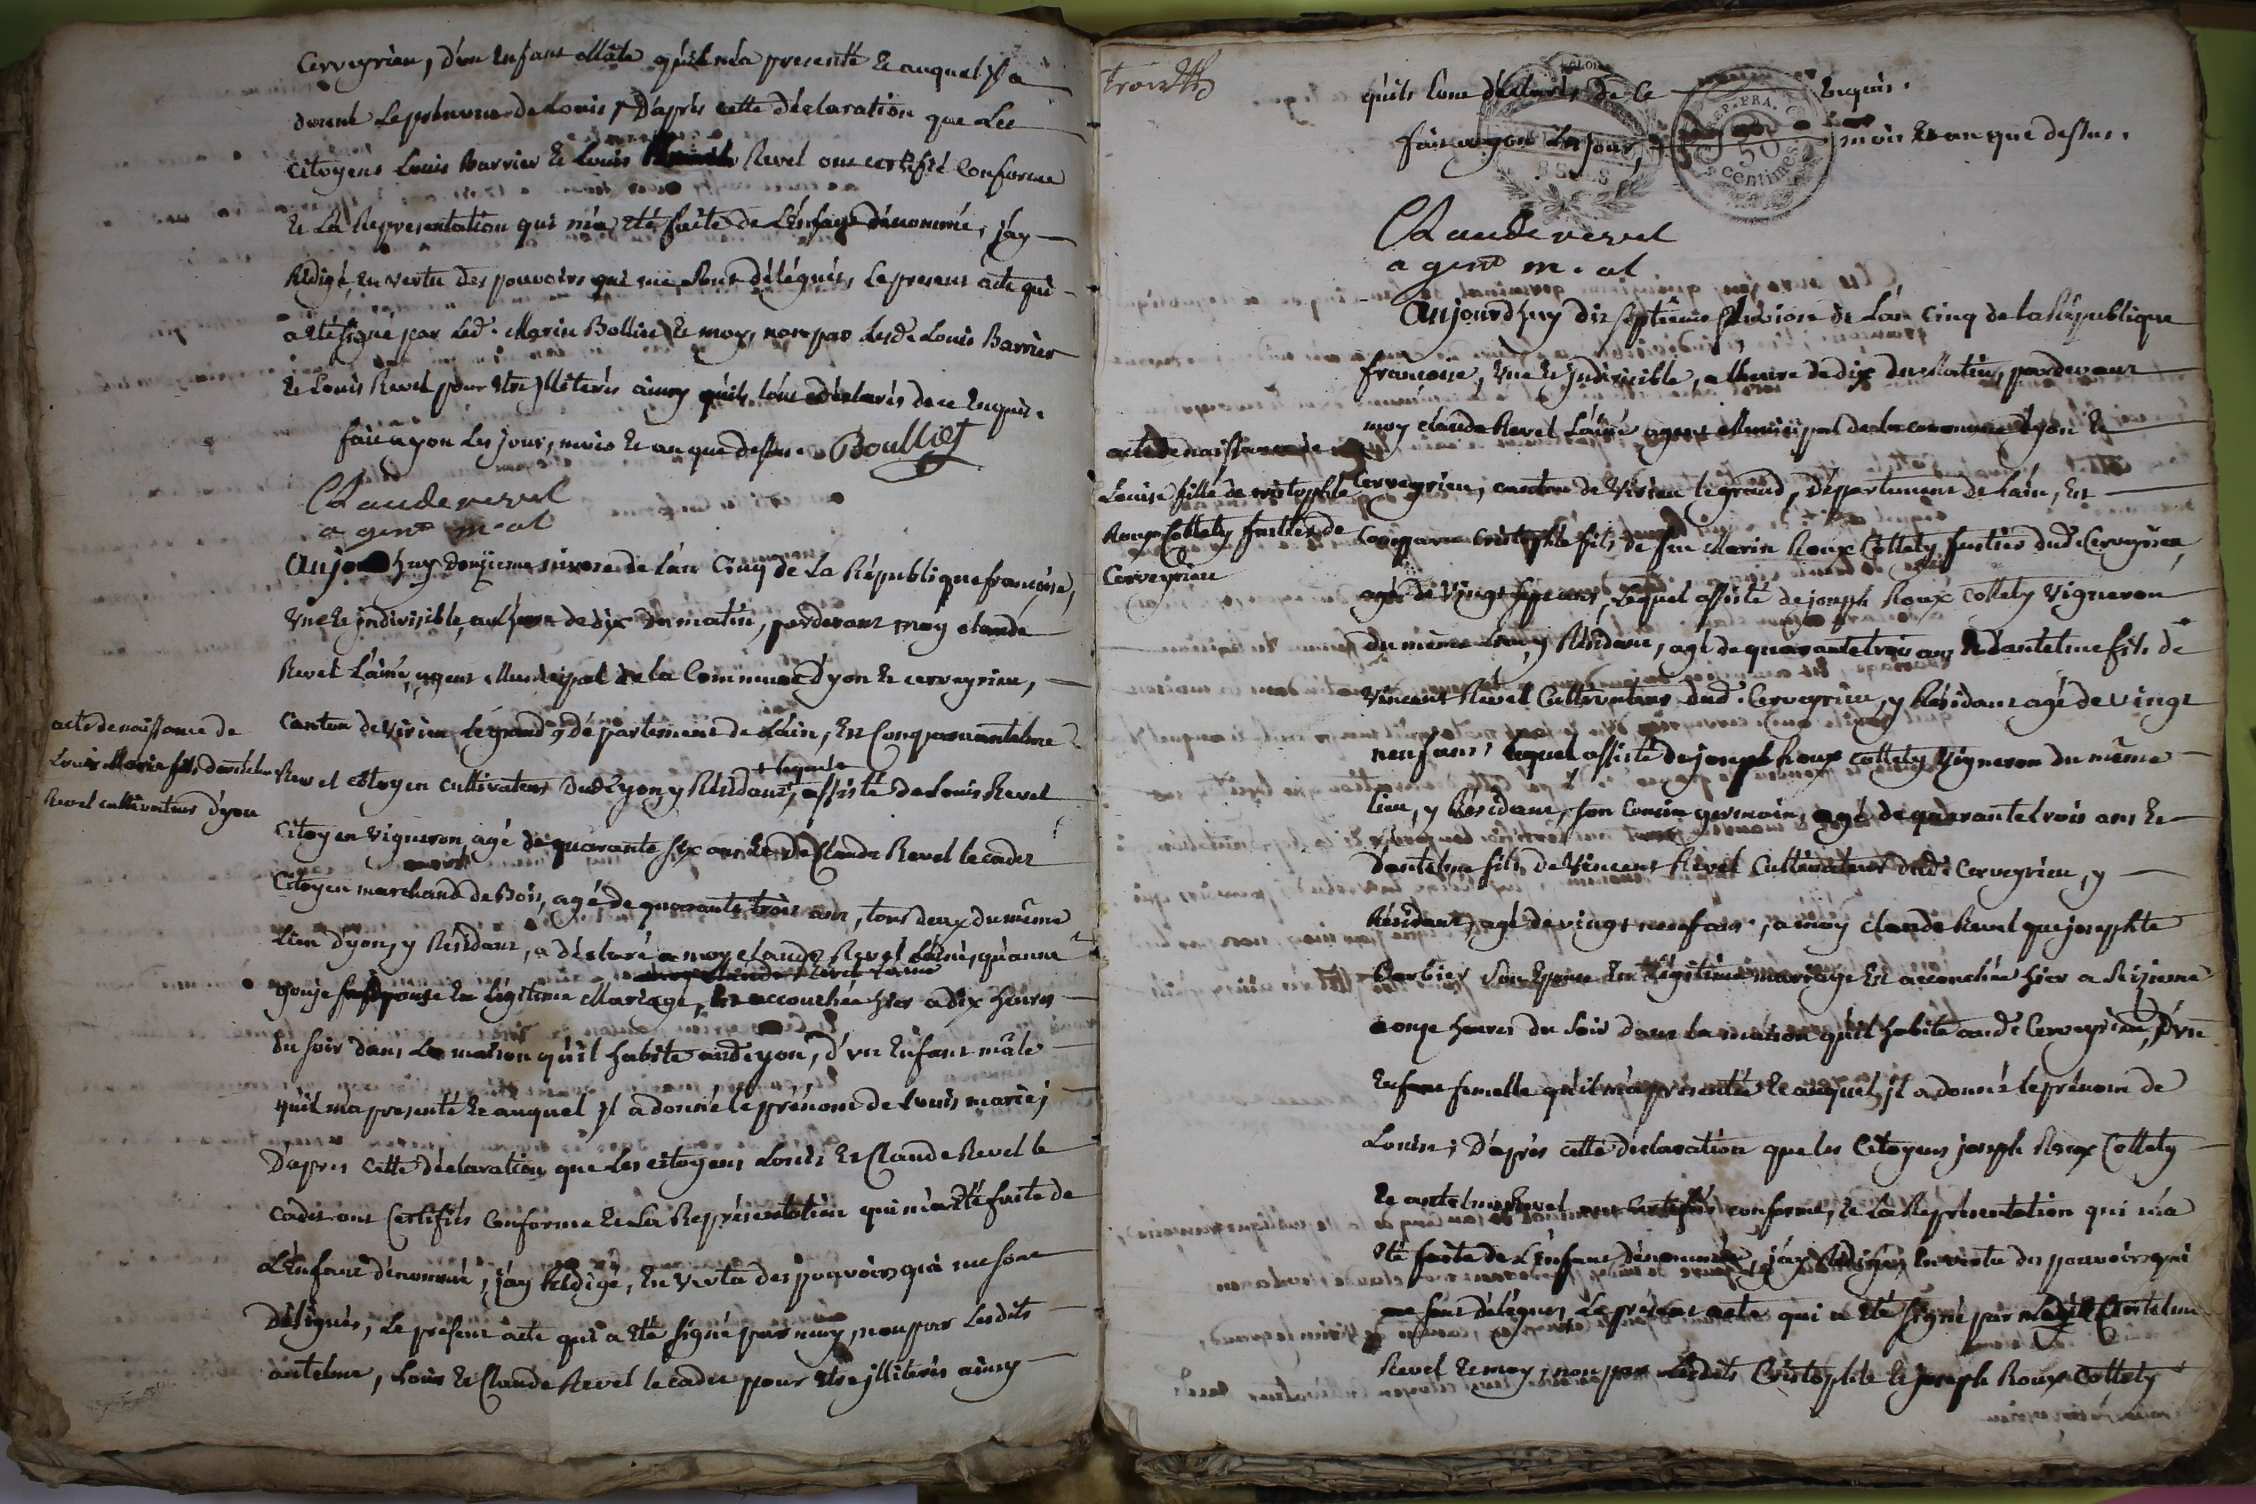 Cerveyrieu, d'un Enfant Mâle qu'il m'a presenté Et auquel Jl a
donné Le prénom de Louis, D'après cette déclaration que Les
citoyens Louis Barrier Et Louis Revel ont certifié Conforme
Et La Representation qui m'a Eté faite de L'Enfant dénommé, j'ay
Rédigé, En vertu des pouvoirs qui me sont délégués, Le present acte qui
a Eté signé par Led. Marin Bollin Et moy, non par Lesd. Louis Barrier
Et Louis Revel pour Etre jlliterés ainsy qu'ils l'ont déclarés de ce Enquis.
fait a yon Les jour, mois Et an que dessus. Boulliet
Claude revel
agent m.al
Aujourd'huy douzieme nivose de L'an Cinq de La République françoise,
Vne Et jndivisible, a L'heure de dix du matin, pardevant moy claude
Revel L'ainé, agent Municipal de la Commune d'yon Et cerveyrieu,
acte de naissance de
Louis Marie fils d'antelme
Revel cultivateur d'yon
Canton de Virieu Legrand, département de L'ain, Est Comparu antelme
Revel citoyen cultivateur dud. yon, y Résidant, Lequel assisté de Louis Revel
Citoyen vigneron, agé de quarante six ans Et de Claude Revel le cadet
Citoyen marchand de Bois, agé de quarante trois ans, tous deux du même
Lieu d'yon, y Résidant, a déclaré a moy claude Revel L'ainé, qu'anne
gonje son Epouse En Légitime Mariage, Est accouchée hier a dix heures
du soir dans La maison qu'il habite aud. yon, d'vn Enfant mâle
qu'il m'a presenté Et auquel jl a donné le prénom de Louis marie;
D'après Cette déclaration que Les citoyens Louis Et Claude Revel le
cadet ont Certifiés Conforme Et La Représentation qui m'a Eté faite de
L'Enfant dénommé, j'ay Rédigé, En Vertu des pouvoirs qui me sont
Délégués, Le present acte qui a Eté signé par moy, non par Lesdits
antelme, Louis Et Claude Revel le cadet pour Etre jlliterés ainsy
qu'ils l'ont déclarés de Ce Enquis.
fait a yon Les jour, mois Et an que dessus.
Claude revel
agent m.al
Aujourd'huy dix septieme pluviose de L'an Cinq de la République
francoise, Vne Et jndivisible, a l'heure de dix du Matin, pardevant
moy claude Revel L'ainé agent Municipal de la commune d'yon Et
acte de naissance de
Louise fille de cristophle
Roux Collety fustier de
Cerveyrieu
Cerveyrieu, canton de Virieu le grand, département de L'ain, Est
Comparu cristophle fils de feu Marin Roux Collety fustier dud. Cerveyrieu,
agé de vingt sept ans, Lequel assisté de joseph Roux Collety Vigneron
du même Lieu, y Résidant, agé de quarante trois ans Et d'antelme fils de
Vincent Revel Cultivateur dud. Cerveyrieu, y Résidant agé de vingt
neuf ans, Lequel assisté de joseph Roux Collety Vigneron du même
lieu, y Résidant, son Cousin germain, agé de quarante trois ans Et
d'antelme fils de Vincent Revel Cultivateur dud. Cerveyrieu, y
Résidant, agé de vingt neuf ans, a moy claude Revel que josephte
Barbier son Epouse En Légitime mariage Est accouchée hier a
onze heures du soir dans La maison qu'il habite aud. Cerveyrieu, d'vn
Enfant femelle qu'il m'a présentée Et auquel jl a donné le prénom de
Louise; D'après cette déclaration que les Citoyens joseph Roux Collety
Et antelme Revel ont certifiés conforme, Et La Représentation qui m'a
Eté faite de L'Enfant dénommée, j'ay Rédigé, En vertu des pouvoirs qui
me sont délégués Le présent acte qui a Eté signé par Led. antelme
Revel Et moy, non par Lesdits Cristophle Et joseph Roux Collety